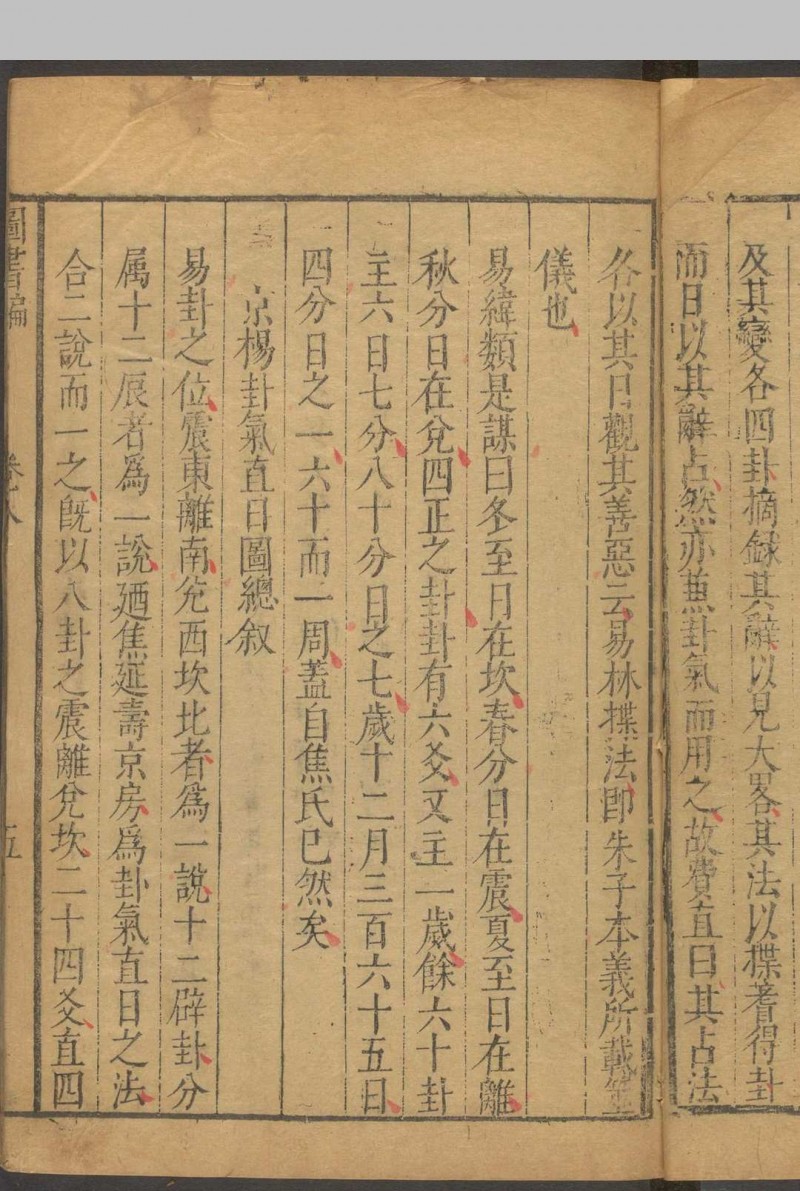 及其變各四卦摘録其辭以見大畧其法以揲蓍得卦
而日以其辭占然亦兼卦氣而用之故費直曰其占法
各以其日觀其善惡云易林揲法即朱子本義所載筮
儀也
易緯類是謀曰冬至日在坎春分日在震夏至日在離
秋分日在兌四正之卦卦有六爻爻主一歲餘六十卦
主六日七分八十分日之七歲十二月三百六十五日
四分日之一六十而一周蓋自焦氏已然矣
京楊卦氣直日圖總叙
易卦之位震東離南兌西坎北者爲一說十二辟卦分
属十二辰者爲一說廼焦延壽京房爲卦氣直日之法
合二說而一之旣以八卦之震離兌坎二十四爻直四
圖書編
五